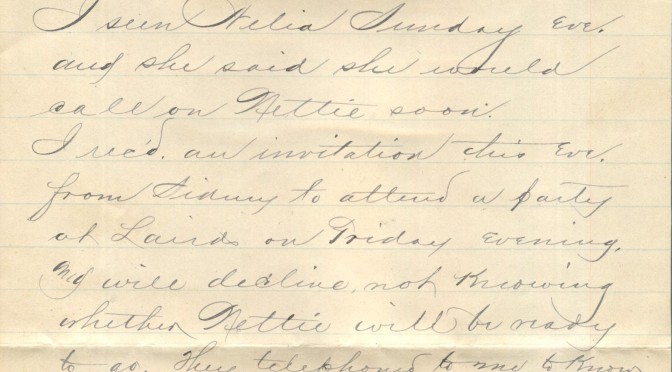 I seen Nelia Sunday Eve.
and she said she would
call on Nettie soon.
I rec'd. an invitation this Eve.
from Sidney to attend a party
at Lairds on Friday evening.
and will decline, not Knowing
whether Nettie will be ready
to go. They telephoned to me to Know